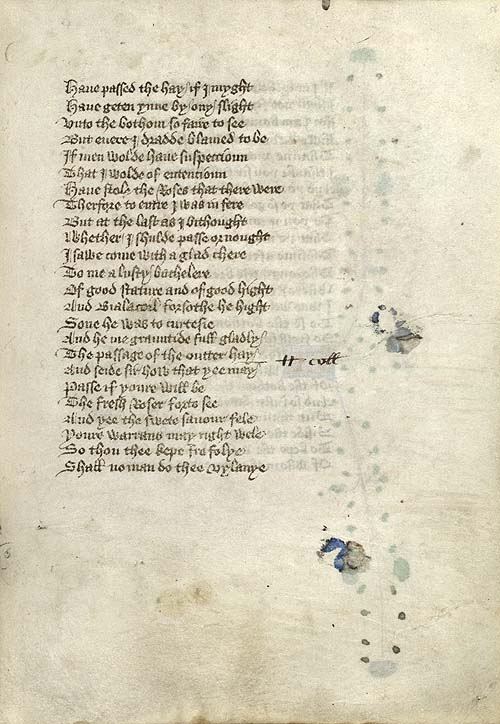 Haue passed the hay / if I myght
Haue geten ynne by / ony / slight
Vnto the bothom so faire to see
But euere I dradde blamed to be
If men wolde haue suspeccioun
That I wolde of entencioun
Haue stole the Roses that there were
Therfore to entre I was in fere
But at the last as I bithought
Whether / I shulde passe or nought
I sawe come with a glad chere
To me a lusty / bachelere
Of good stature and of good hight
And Bialacoil forsothe he hight
Sone he was to curtesie
And he me grauntide full gladly /
The passage of the outter hay /
And seide sir how that yee may /
Passe if youre will be
The fresh Roser forto see
And yee the swete sauour fele
Youre warrans may right wele
So thou thee kepe fro folye
Shall no man do thee vylanye
coll